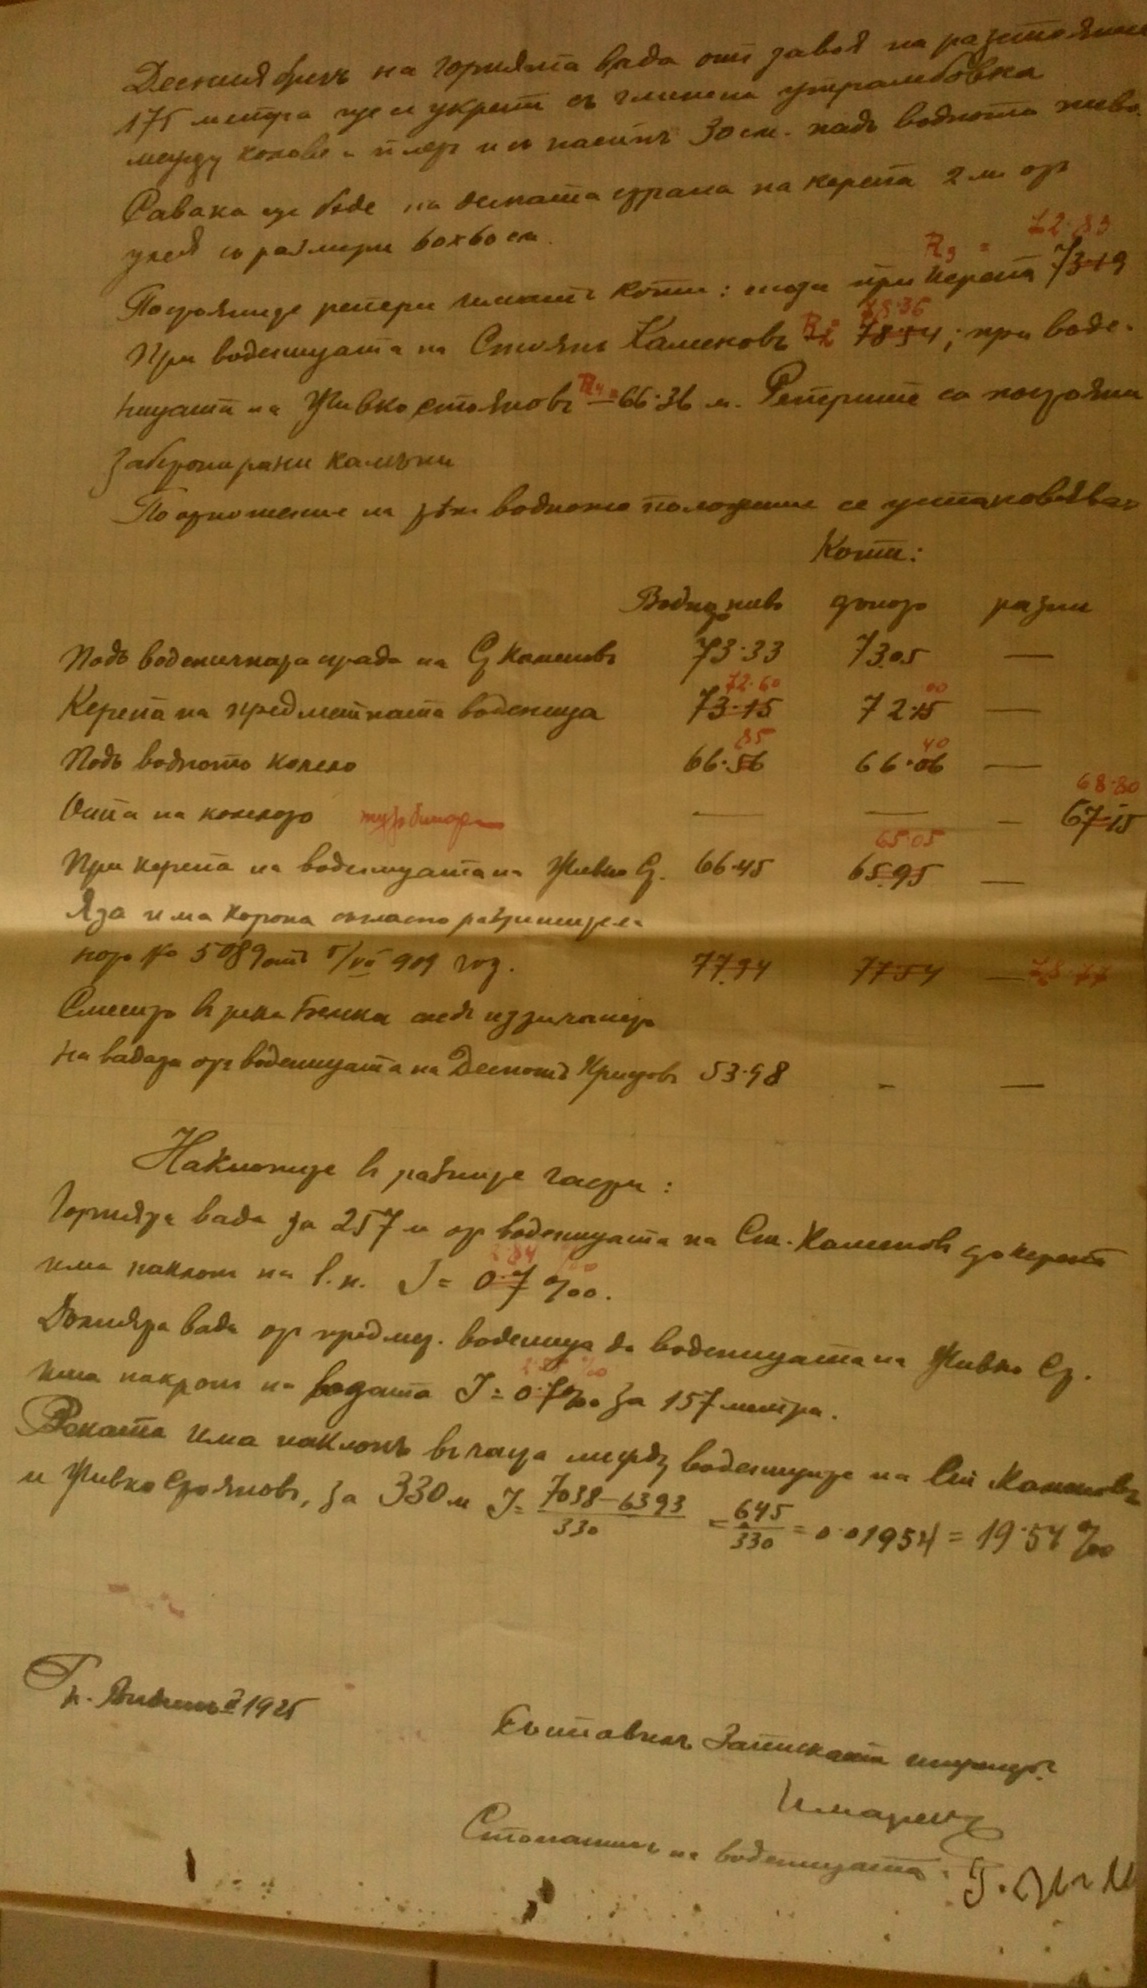 Десния брегъ на горнята вада отъ завоя на разстояние
175 метра ще се укрепи съ глинена утрамбовка
между колове и плетъ и съ насипъ 30 см. надъ водното ниво.
Савака ще бѫде на дясната страна на керепа 2 м. отъ
улея съ размери 60х60 см.
R3 = 72.83
Постоянните репери иматъ коти: този при керепа 73.19
R2 78.36
При воденицата на Стоянъ Каменовъ 78.54; при воде-
ницата на Живко Стояновъ R4 = 66.36 м. Реперите са постоянни
забетонирани камъни
По отношение на водното положение се установяват
Коти:
Водно ниво дъното разни
Подъ воденичната сграда на Ст. Каменовъ 73.33 73.05 —
72.60 00
Керепа на предметната воденица 73.15 72.15 —
85 40
Подъ водното колело 66.56 66.06 —
68.80
Оста на колелото турбината — — — 67.15
65.05
При керепа на воденицата на Живко Ст. 66.45 65.95 —
Яза има корона съгласно разрешител-
ното № 5089 отъ 5/VII 909 год. 77.94 77.54 —
на вадата отъ воденицата на Деспотъ Христовъ 53.98 - —
Наклоните въ разните части:
Горнята вада за 257 м отъ воденицата на Ст. Каменовъ до керепа
2.84 ‰
има наклонъ на в.н. J = 0.7 ‰.
Долнята вада отъ предмет. воденица до воденицата на Живко Ст.
има наклонъ на водата J = 0.7‰ за 157 метра.
Реката има наклонъ въ частта между воденците на Ст. Каменовъ
и Живко Стояновъ, за 330 м J = 7038-6393 / 330 = 645 / 330 = 0.01954 = 19.54 ‰
1925
Съставилъ Записката
Стопанинъ на воденицата: